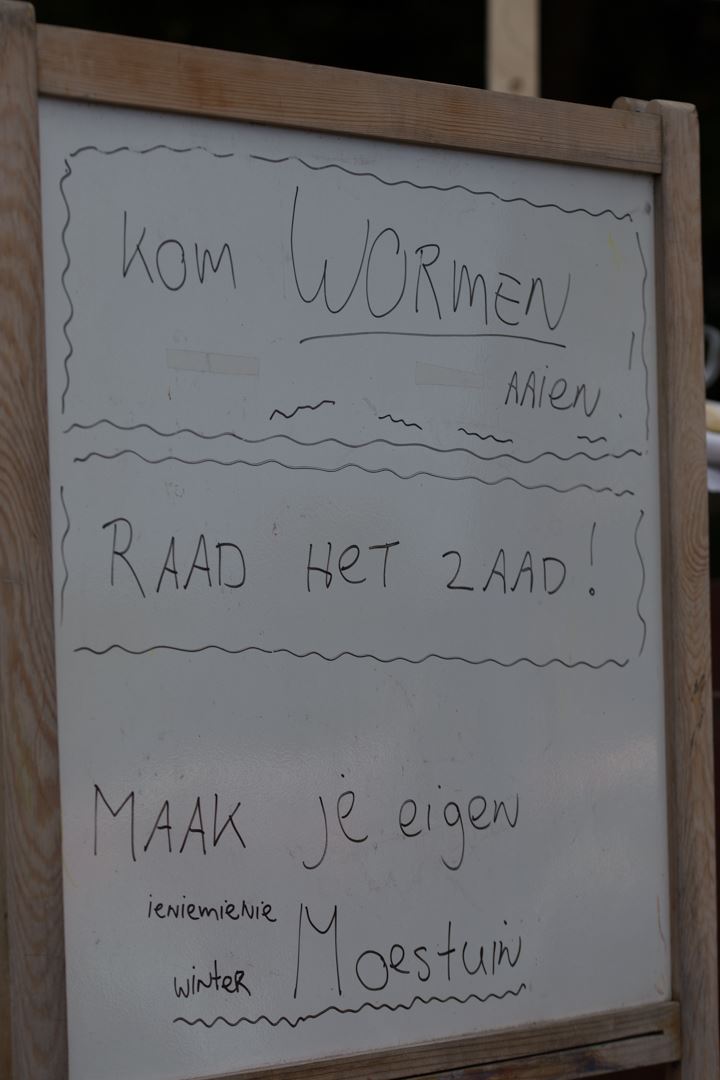 KOM WORMEN
AAiEN.
RAAD HeT ZAAD!
MAAK je eigen
ieniemienie
winter Moestuin